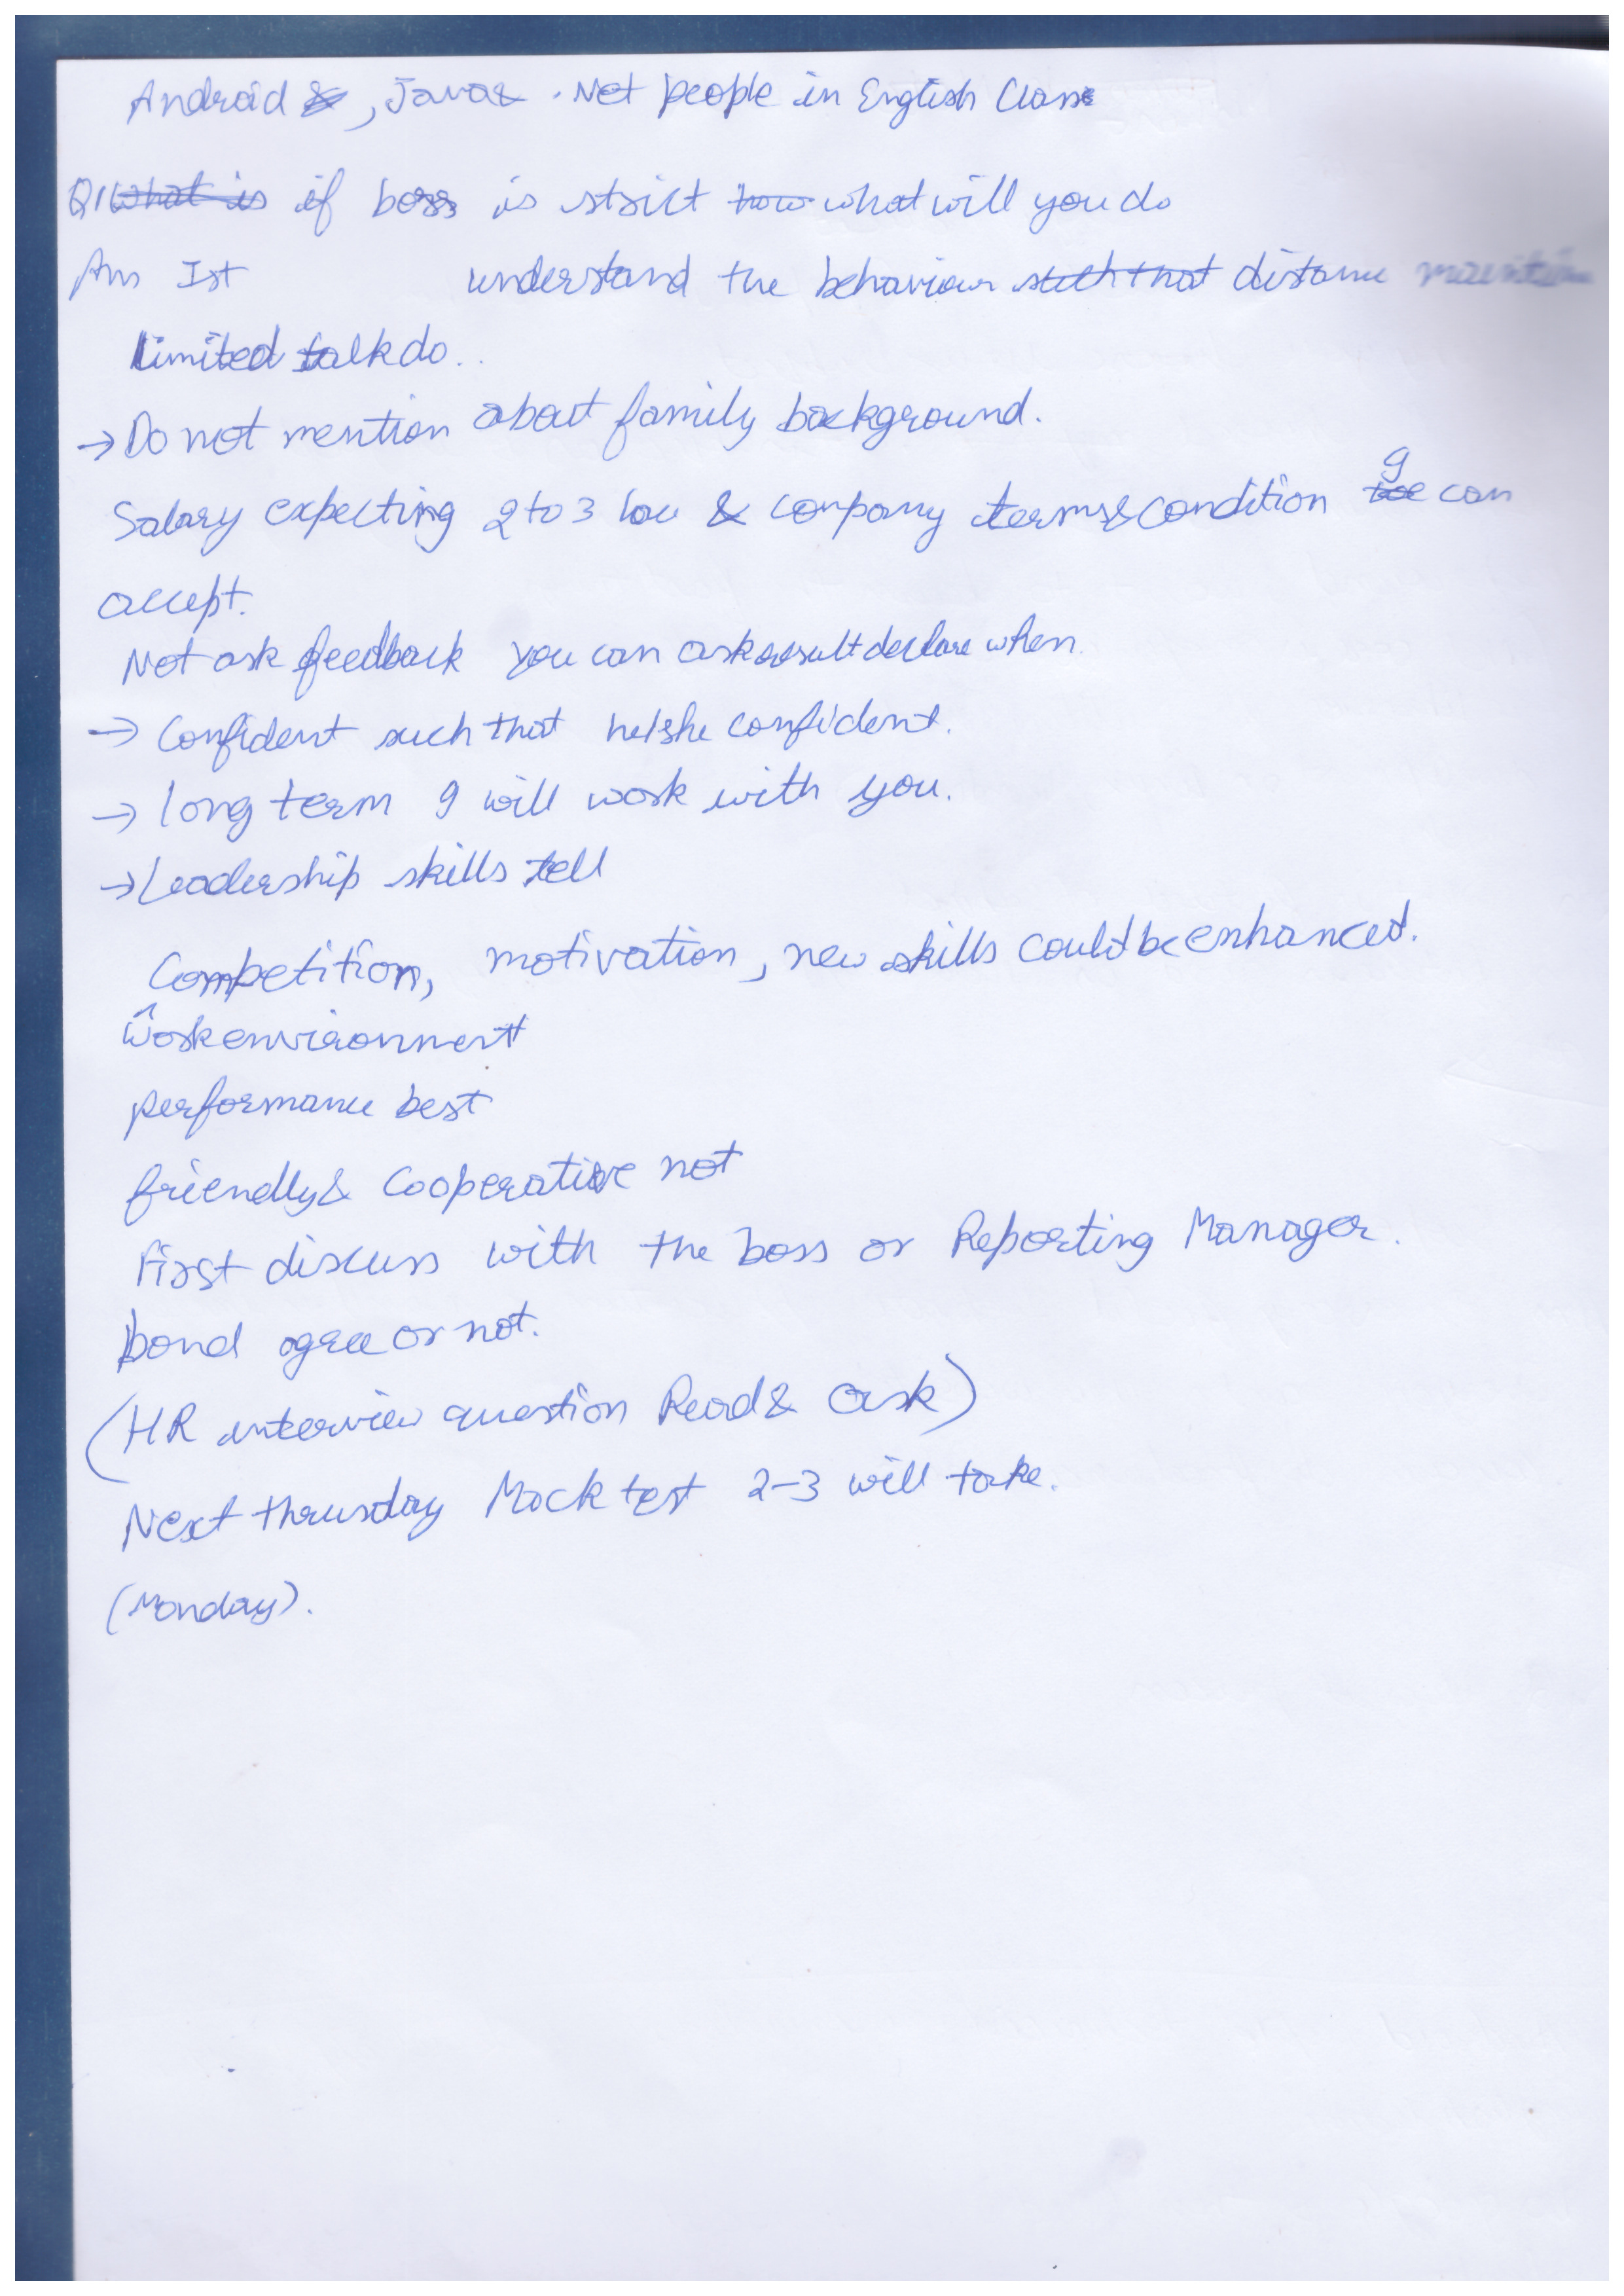 Android &, Java & .Net people in English Class
Q1 What is if boss is strict how what will you do
Ans Ist understand the behaviour such that distance maintain
limited talk do..
→ Do not mention about family background.
Salary expecting 2 to 3 lac & company terms & condition I can
accept.
Not ask feedback you can ask result declare when.
→ Confident such that he/she confident.
→ long term I will work with you.
→ Leadership skills tell
Competition, motivation, new skills could be enhanced.
Work environment
performance best
friendly & Cooperative not
First discuss with the boss or Reporting Manager.
bond agree or not.
(HR interview question Read & ask)
Next thrusday Mock test 2-3 will take.
(Monday).